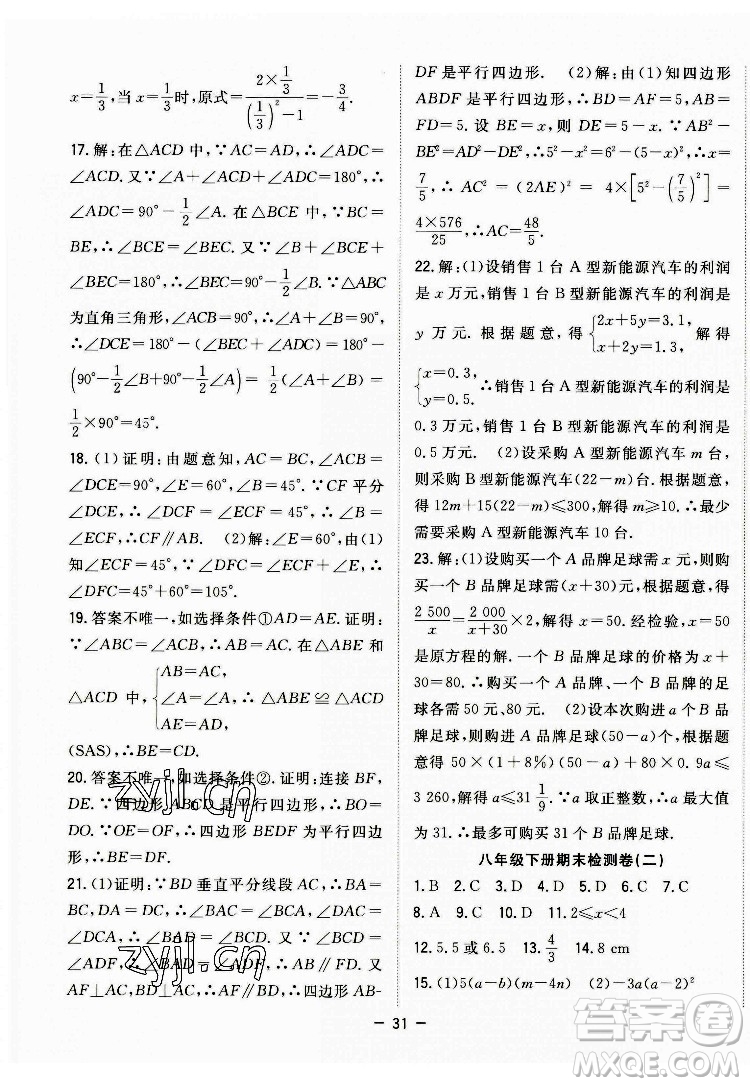 x=1/3,当 x=1/3时,原式=(2×1/3)/((1/3)²-1)=-3/4.
17.解:在△ACD 中,∵AC=AD,∴∠ADC=
∠ACD.又∵∠A+∠ACD+∠ADC=180°,∴
∠ADC=90°-1/2∠A.在△BCE 中,∵BC=
BE,∴∠BCE=∠BEC.又∵∠B+∠BCE+
∠BEC=180°,∴∠BEC=90°-1/2∠B.∵△ABC
为直角三角形,∠ACB=90°,∴∠A+∠B=90°.
∴∠DCE=180°-∠ADC-∠BEC=180°-
(90°-1/2∠B+90°-1/2∠A)=1/2(∠A+∠B)=
1/2×90°=45°.
18.(1)证明:由题意知,AC=BC,∠ACB=
∠DCE=90°,∴∠A=∠B=45°.∵CF 平分
∠DCE,∴∠DCF=∠ECF=45°,∴∠B=
∠ECF,∴CF∥AB. (2)解:由(1)
知∠ECF=45°,∵∠DFC=∠ECF+∠E,∴
∠DFC=45°+60°=105°.
19.答案不唯一,如选择条件①AD=AE.证明:
∵∠ABC=∠ACB,∴AB=AC.在△ABE 和
△ACD 中,{AB=AC,
∠A=∠A,
AE=AD,
∴△ABE≌△ACD
(SAS),∴BE=CD.
20.答案不唯一,如选择条件②.证明:连接 BF,
DE.∵四边形 ABCD 是平行四边形,∴BO=
DO.∵OE=OF,∴四边形 BEDF 为平行四边
形,∴BE=DF.
21.(1)证明:∵BD 垂直平分线段 AC,∴AD=
DC,AB=BC,∴∠ADB=∠CDB,∠DAC=
∠DCA,∴∠BAC=∠BCA.∵∠BCD=
∠ADF,∴∠BAD=∠ADF,∴AB∥FD.又∵
AF⊥AC,BD⊥AC,∴AF∥BD,∴四边形 AB-
DF是平行四边形. (2)解:由(1)知四边形
ABDF 是平行四边形,∴BD=AF=5,AB=
FD=5.设 BE=x,则 DE=5-x.∵AB²-
BE²=AD²-DE²,∴5²-x²=6²-(5-x)²,∴x=
7/5,∴AC²=(2AE)²=4×[5²-(7/5)²]=
4×576/25,∴AC=48/5.
22.解:(1)设销售 1 台 A 型新能源汽车的利润
是 x 万元,销售 1 台 B 型新能源汽车的利润是
y 万元.根据题意,得{2x+5y=3.1,
x+2y=1.3,
解得
{x=0.3,
y=0.5.
∴销售 1 台 A 型新能源汽车的利润为
0.3 万元,销售 1 台 B 型新能源汽车的利润为
0.5 万元. (2)设采购 A 型新能源汽车 m 台,
则采购 B 型新能源汽车(22-m)台.根据题意,
得 12m+15(22-m)≤300,解得 m≥10.∴最少
需要采购 A 型新能源汽车 10 台.
23.解:(1)设购买一个 A 品牌足球需 x 元,则购
买一个 B 品牌足球需(x+30)元.根据题意,得
2 500/x=2 000/(x+30)×2,解得 x=50.经检验,x=50
是原方程的解.一个 B 品牌足球的价格为 x+
30=80.∴购买一个 A 品牌、一个 B 品牌的足
球各需 50 元、80 元. (2)设本次购买 a 个 B 品
牌足球,则购进 A 品牌足球(50-a)个.根据题
意,得 50×(1+8%)×(50-a)+80×0.9a≤
3 260,解得 a≤31 1/9.∵a 取正整数,∴a 最大值
为 31.∴最多可购买 31 个 B 品牌足球.
八年级下册期末检测卷(二)
1.B 2.C 3.D 4.D 5.B 6.C 7.A
8.A 9.C 10.D 11.2≤x≤4
12.5.5 或 6.5 13.4/3 14.8 cm
15.(1)5(a-b)(m-4n) (2)-3a(a-2)²
- 31 -
zyjl.cn
zyjl.cn
答案圈
MXQE.COM